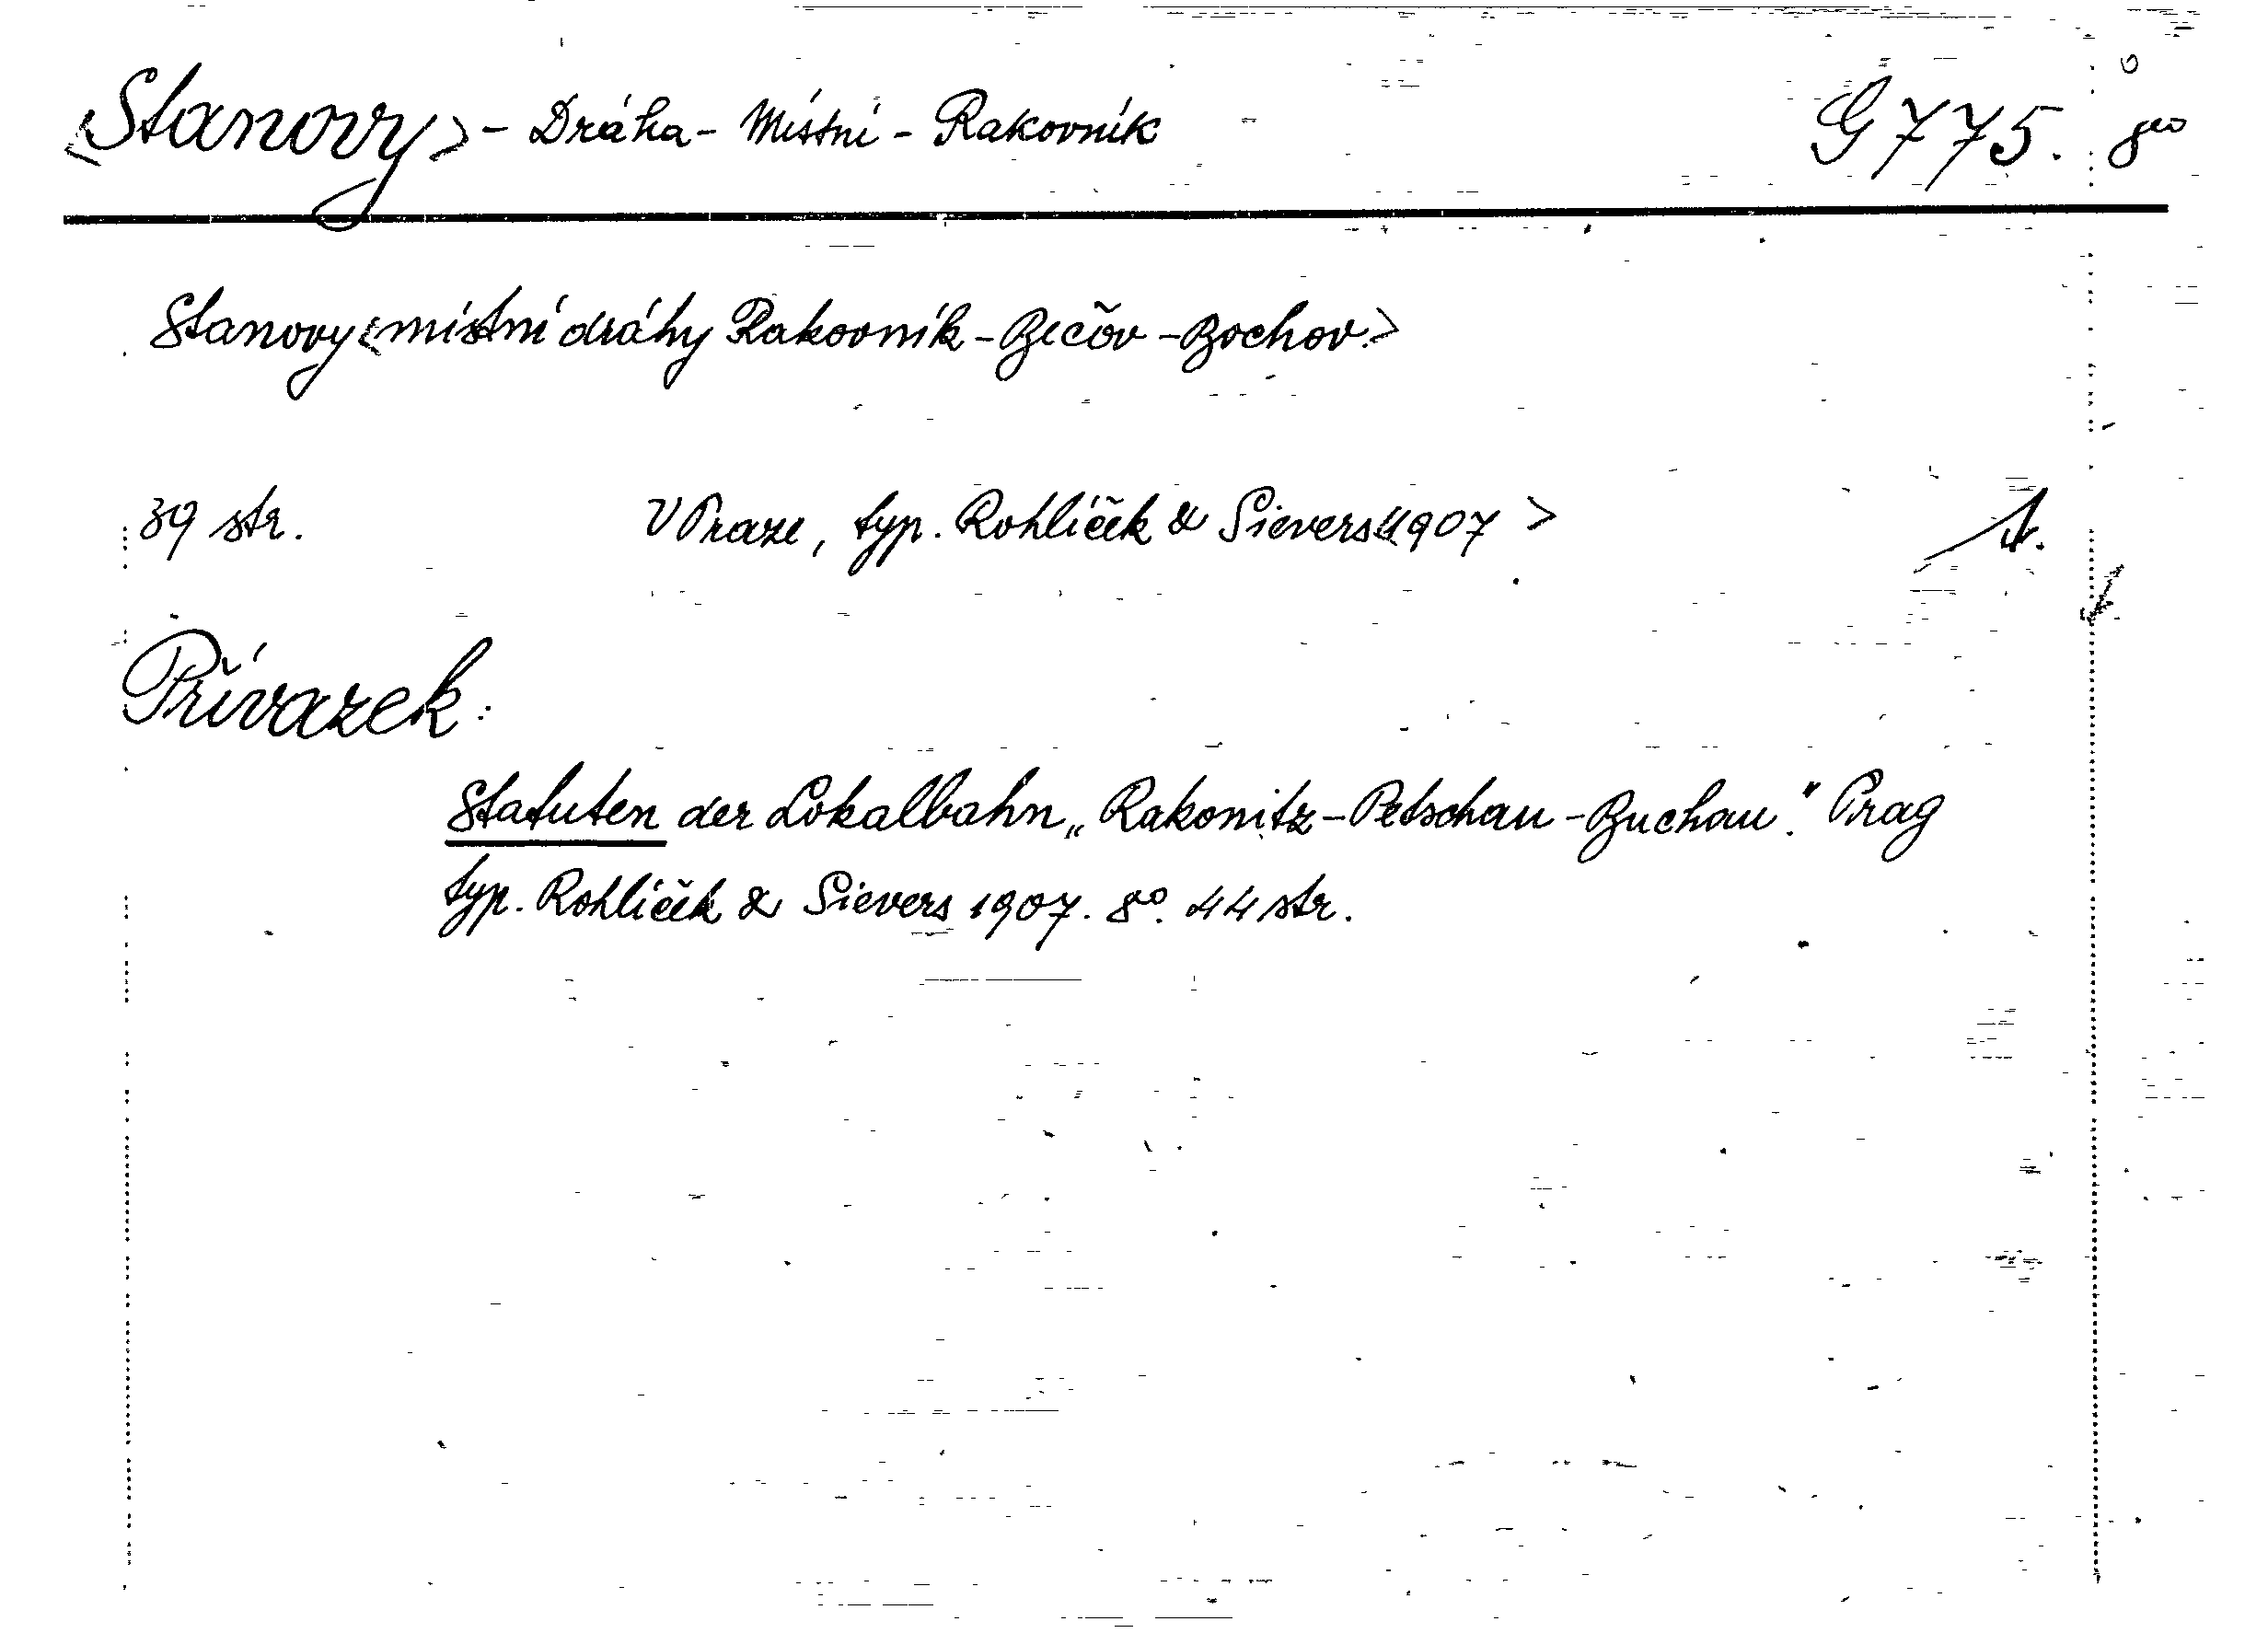 <Stanovy> - Dráha - Místní - Rakovník G 775. 8vo
Stanovy <místní dráhy Rakovník - Bečov - Bochov.>
39 str. V Praze, typ. Rohlíček & Sievers <1907>
Přívazek:
Statuten der Lokalbahn „Rakonitz - Petschau - Buchau." Prag
typ. Rohlíček & Sievers 1907. 8º. 44 str.